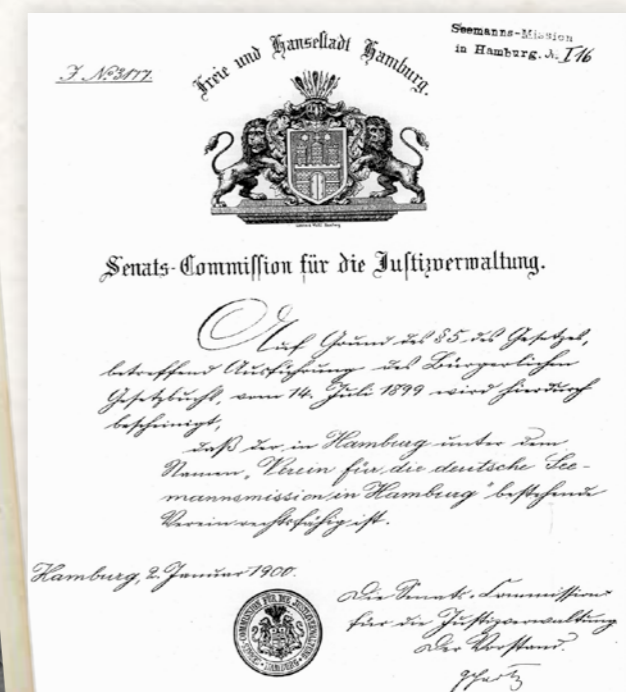 Seemanns-Mission
in Hamburg. A. I 16
J. No 3177.
Freie und Hansestadt Hamburg.
Senats-Commission für die Justizverwaltung.
Auf Grund des § 5 des Gesetzes,
betreffend Ausführung des Bürgerlichen
Gesetzbuchs, vom 14. Juli 1899 wird hierdurch
bescheinigt,
daß der in Hamburg unter dem
Namen „Verein für die deutsche See-
mannsmission in Hamburg" bestehende
Verein rechtsfähig ist.
Hamburg, 2. Januar 1900.
SENATS-COMMISSION FÜR DIE JUSTIZVERWALTUNG
HAMBURG
Die Senats-Commission
für die Justizverwaltung
Der Vorstand.